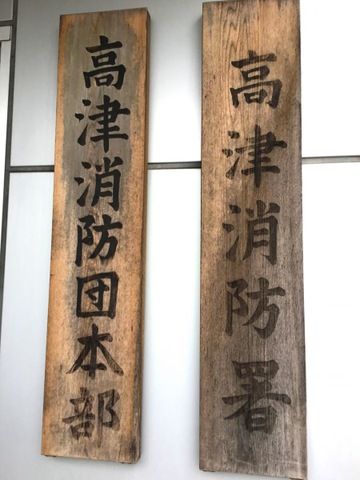 高津消防署
高津消防団本部